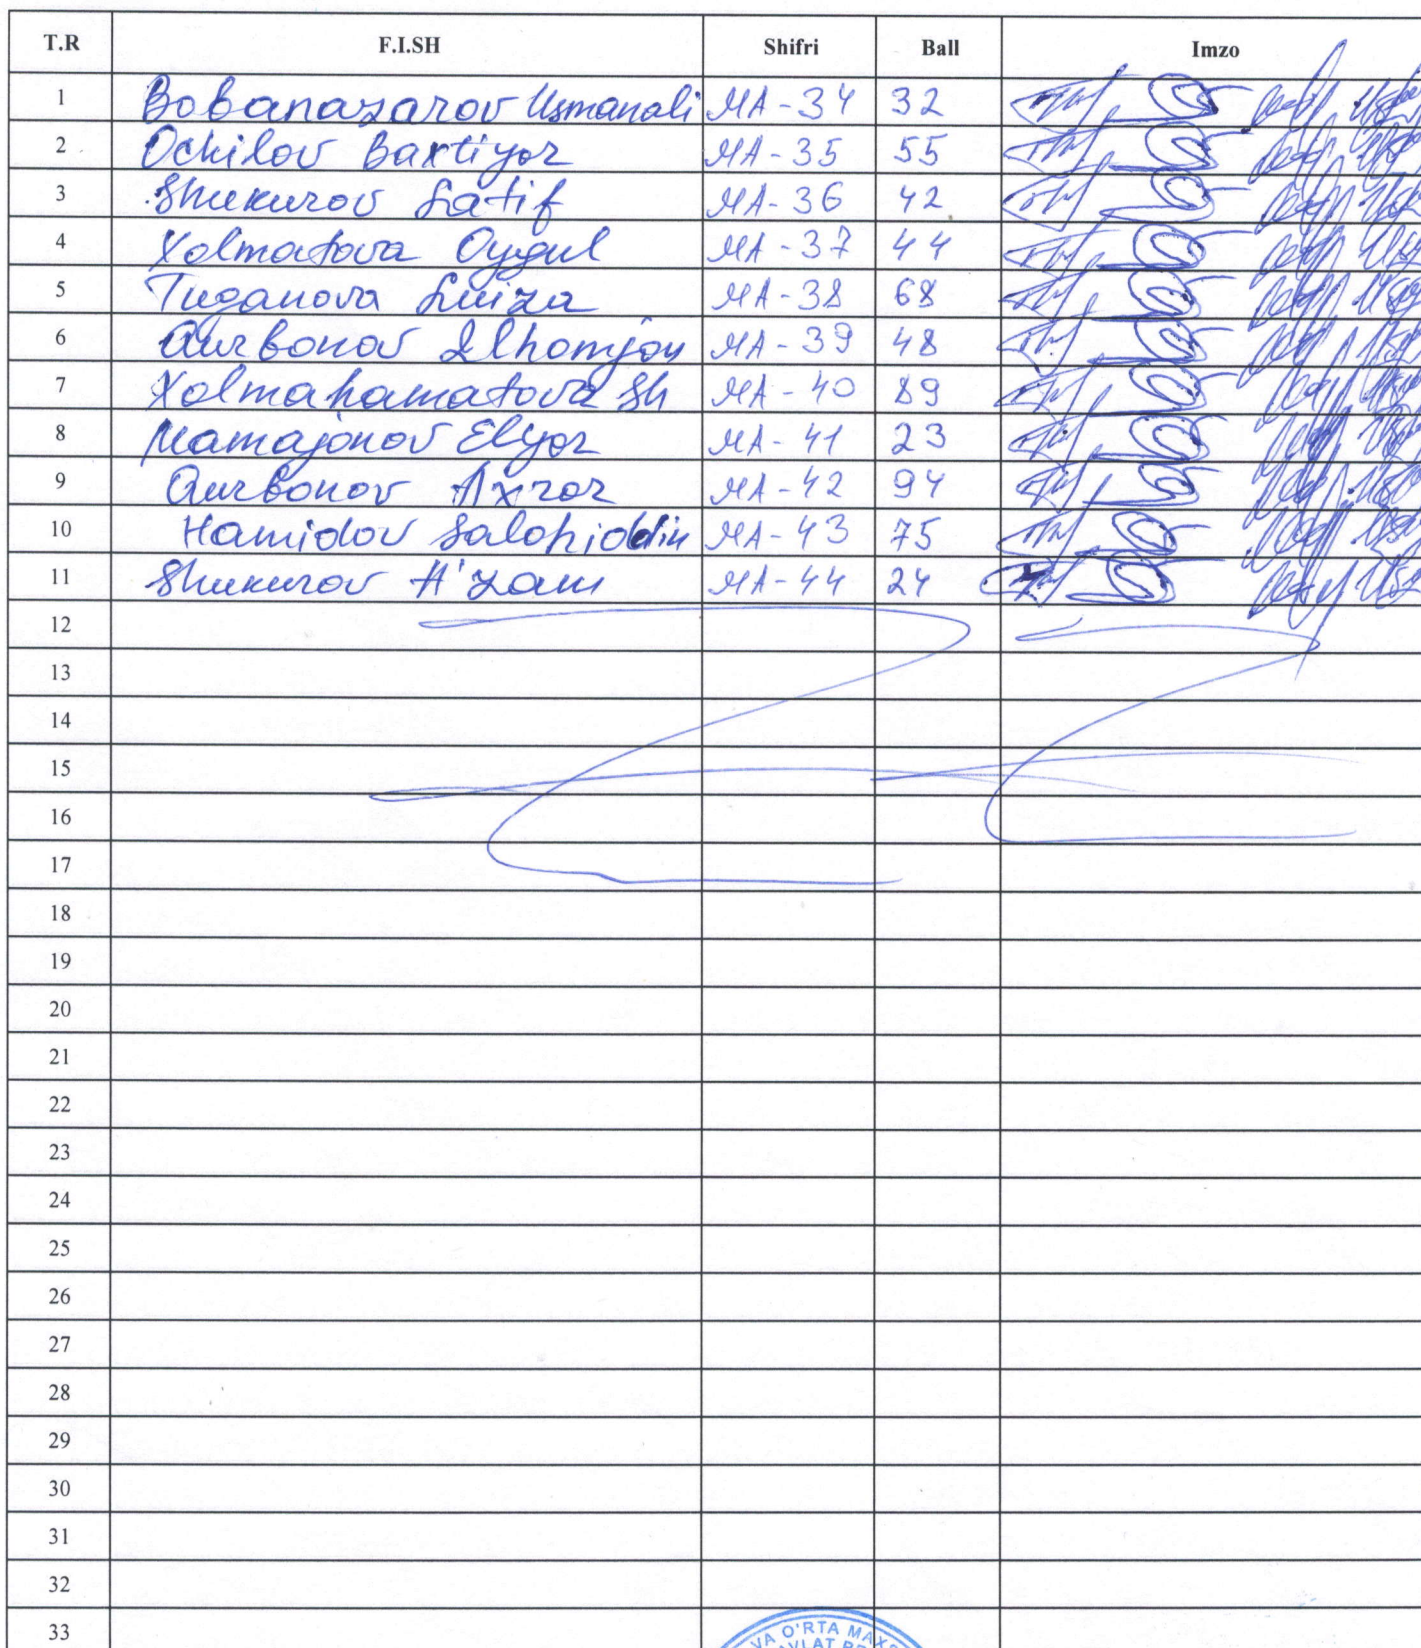 T.R F.I.SH Shifri Ball Imzo
1 Bobanazarov Usmanali MA-34 32
2 Ochilov Baxtiyor MA-35 55
3 Shukurov Latif MA-36 42
4 Xolmatova Oygul MA-37 44
5 Tuganova Luiza MA-38 68
6 Qurbonov Ilhomjon MA-39 48
7 Xolmahamatova Sh MA-40 89
8 Mamajonov Elyor MA-41 23
9 Qurbonov Axror MA-42 94
10 Hamidov Salohiddin MA-43 75
11 Shukurov A'zam MA-44 24
12
13
14
15
16
17
18
19
20
21
22
23
24
25
26
27
28
29
30
31
32
33
VA O'RTA